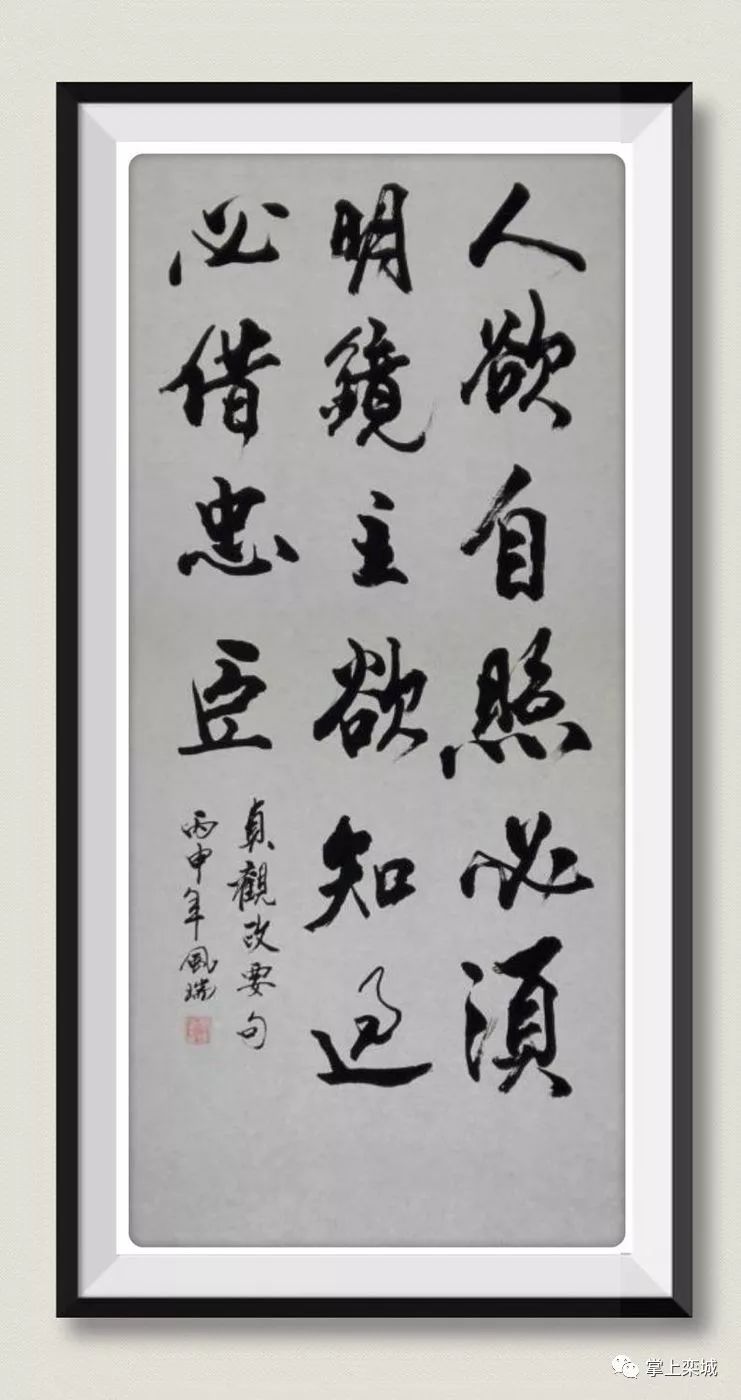 人欲自照必須
明鏡主欲知過
必借忠臣
貞觀政要句
丙申年風瑞
掌上栾城